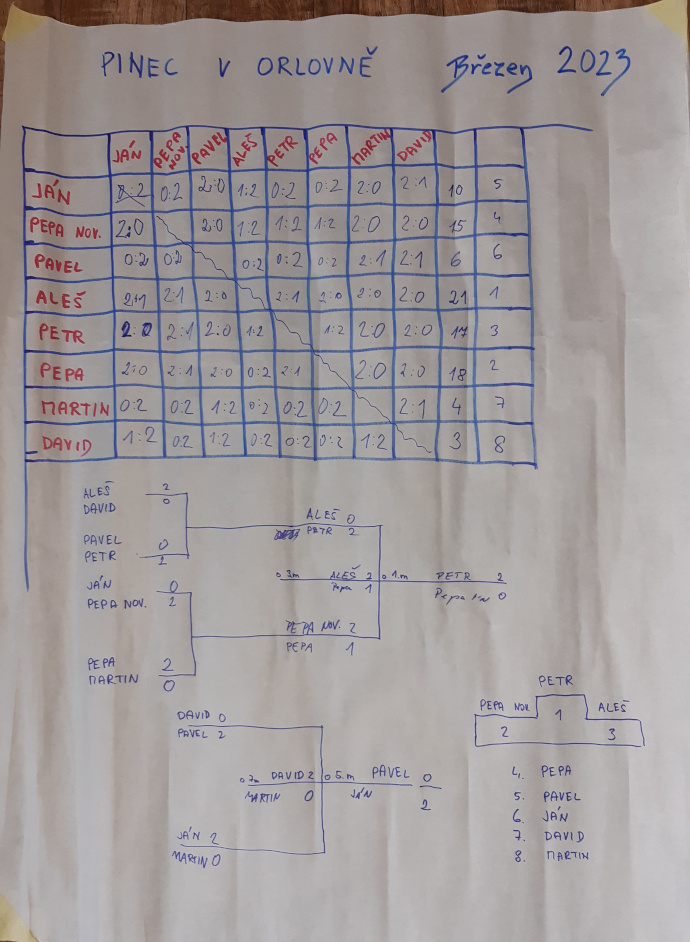 PINEC V ORLOVNĚ Březen 2023
JÁN PEPA NOV. PAVEL ALEŠ PETR PEPA MARTIN DAVID
JÁN 0:2 0:2 2:0 1:2 0:2 0:2 2:0 2:1 10 5
PEPA NOV. 2:0 2:0 1:2 1:2 1:2 2:0 2:0 15 4
PAVEL 0:2 0:2 0:2 0:2 0:2 2:1 2:1 6 6
ALEŠ 2:1 2:1 2:0 2:1 2:0 2:0 2:0 21 1
PETR 2:0 2:1 2:0 1:2 1:2 2:0 2:0 17 3
PEPA 2:0 2:1 2:0 0:2 2:1 2:0 2:0 18 2
MARTIN 0:2 0:2 1:2 0:2 0:2 0:2 2:1 4 7
DAVID 1:2 0:2 1:2 0:2 0:2 0:2 1:2 3 8
ALEŠ 2
DAVID 0
PAVEL 0
PETR 2
JÁN 0
PEPA NOV. 2
PEPA 2
MARTIN 0
ALEŠ 0
PETR 2
o 3m ALEŠ 2
Pepa 1
PEPA NOV. 2
PEPA 1
o 1.m PETR 2
Pepa Nov 0
DAVID 0
PAVEL 2
JÁN 2
MARTIN 0
o 7m DAVID 2
MARTIN 0
o 5.m PAVEL 0
JÁN 2
PETR
PEPA NOV. 1 ALEŠ
2 3
4. PEPA
5. PAVEL
6. JÁN
7. DAVID
8. MARTIN